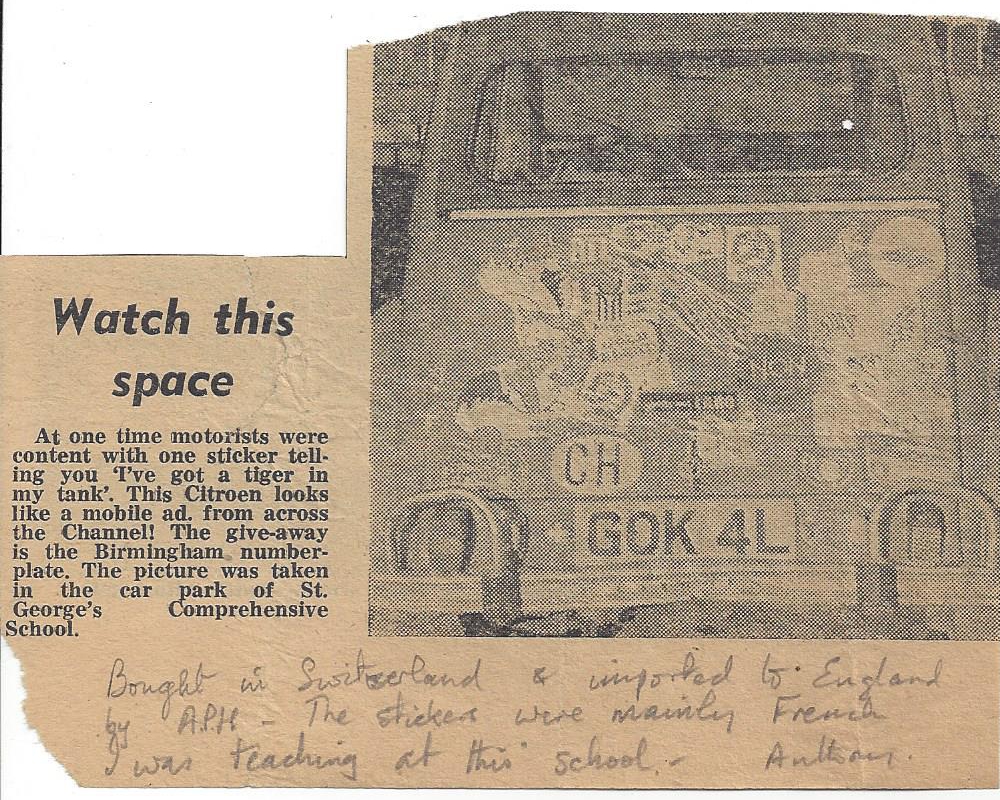 Watch this
space
At one time motorists were
content with one sticker tell-
ing you 'I've got a tiger in
my tank'. This Citroen looks
like a mobile ad. from across
the Channel! The give-away
is the Birmingham number-
plate. The picture was taken
in the car park of St.
George's Comprehensive
School.
CH
GOK 4L
Bought in Switzerland & imported to England
by A.P.H - The stickers were mainly French
I was teaching at this school. - Anthony.